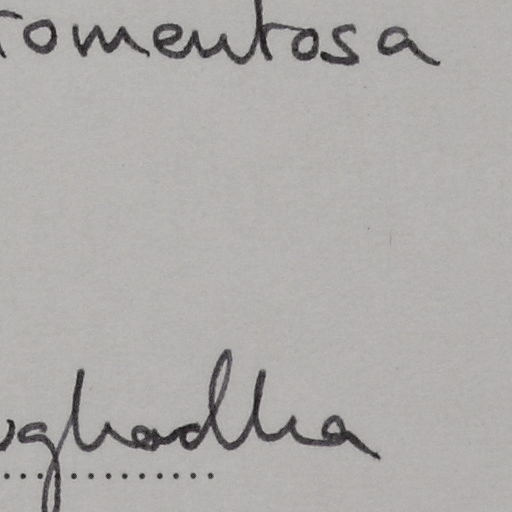 tomentosa
ughadha